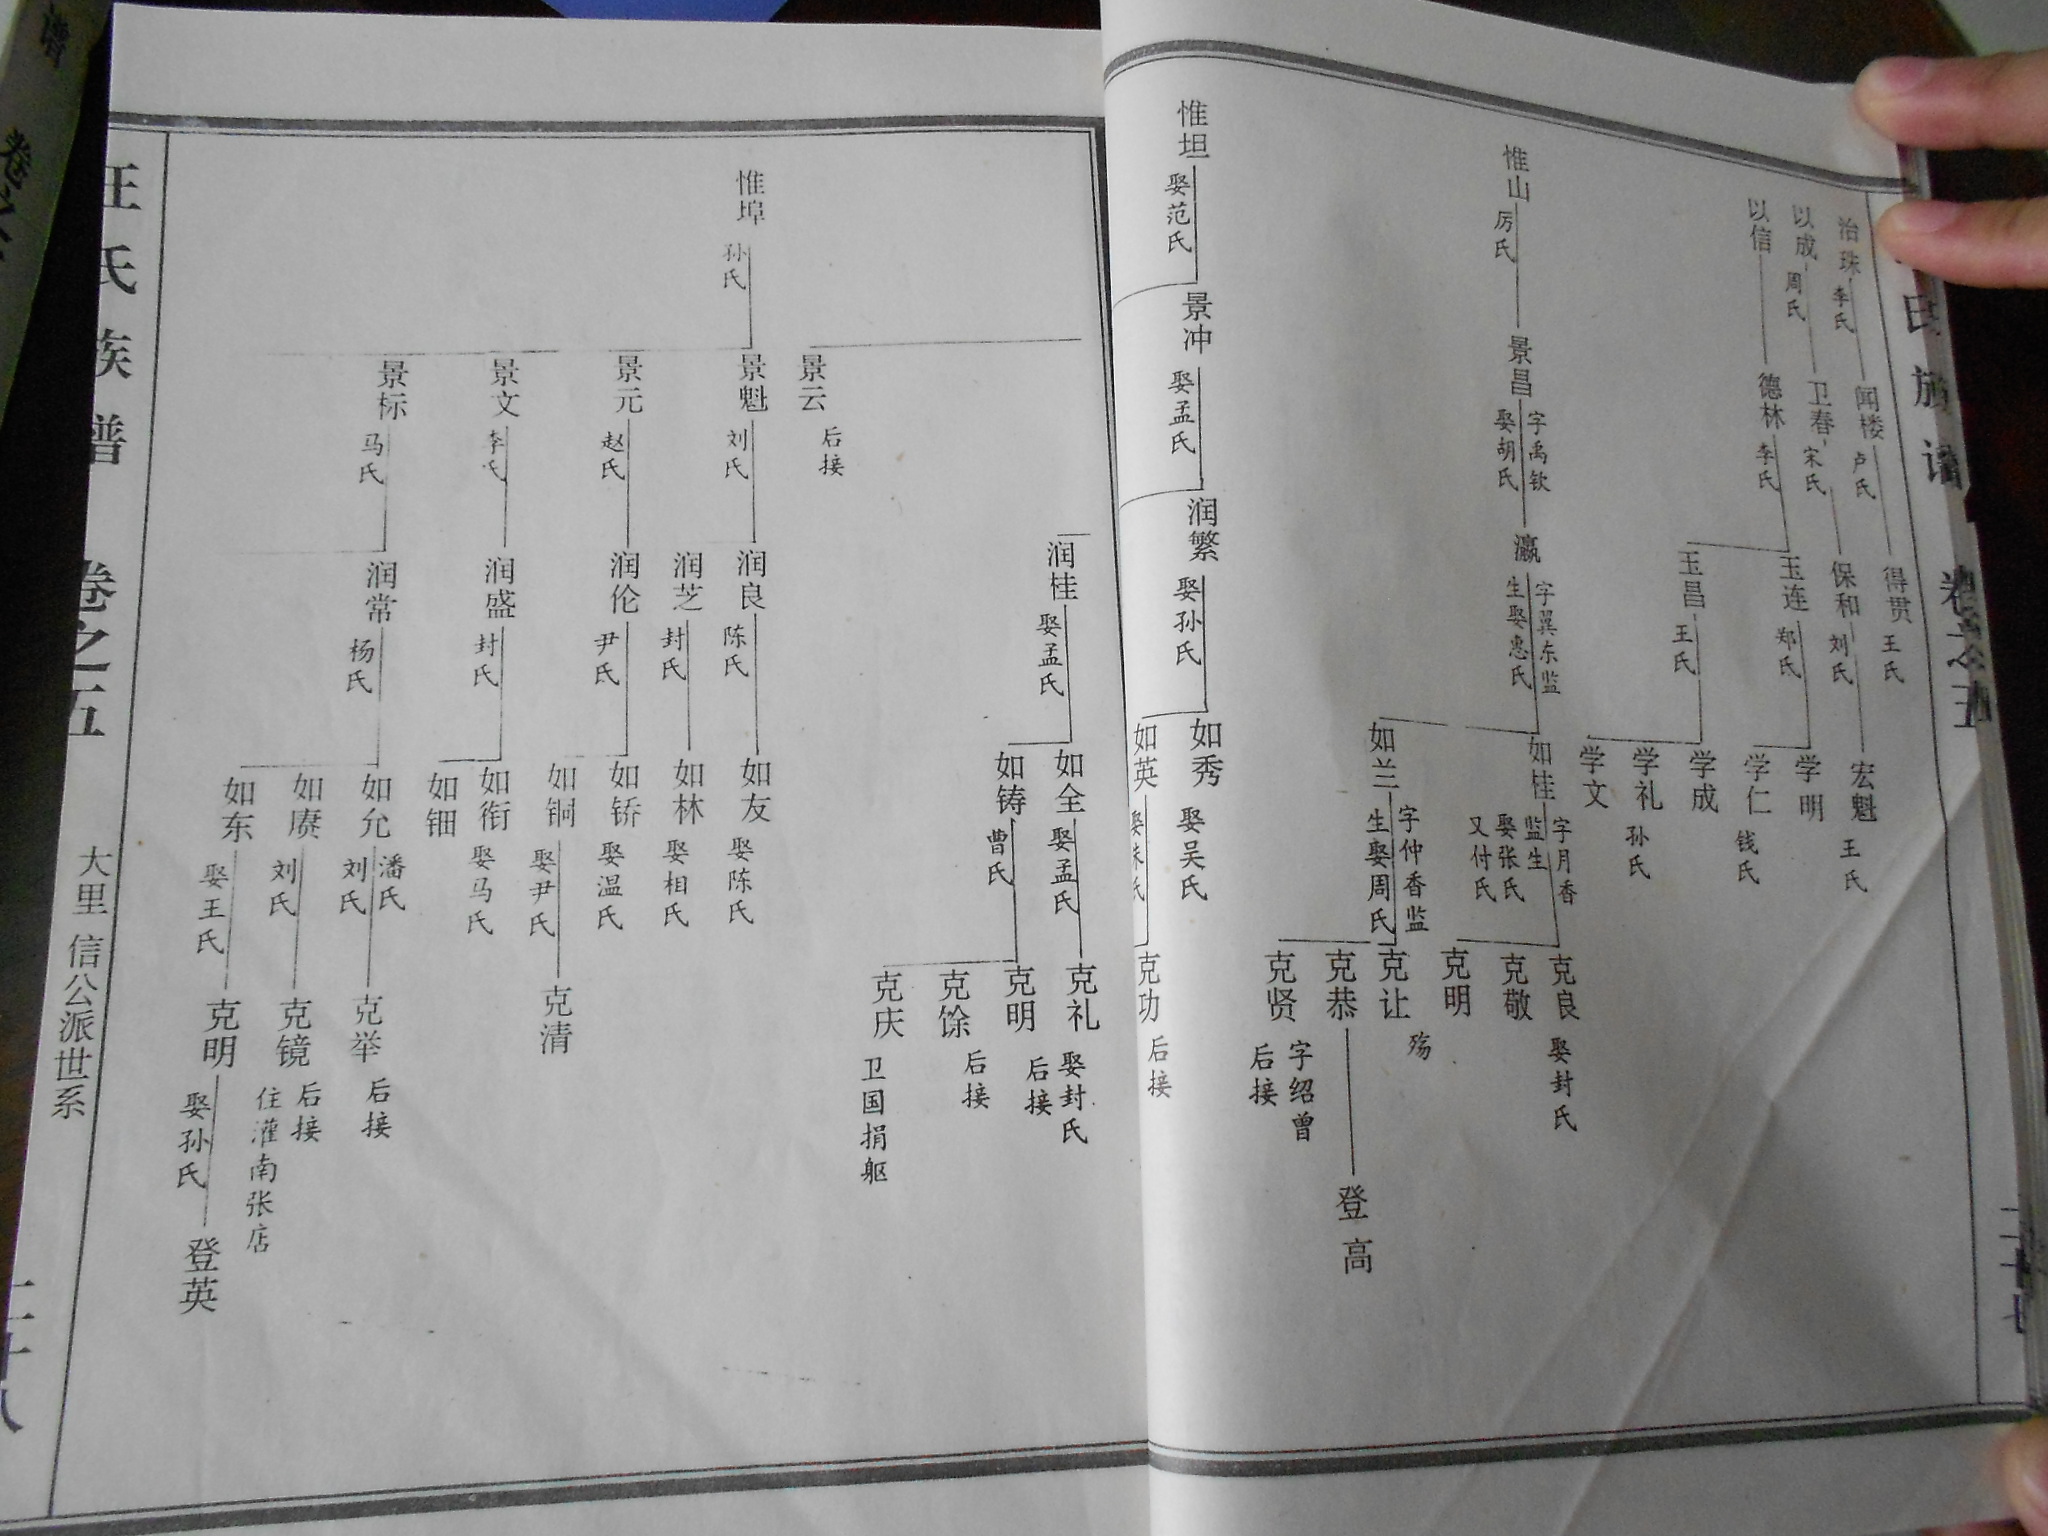 氏族谱
卷之五
二十七
治珠 李氏
闻楼 卢氏
得贯 王氏
以成 周氏
卫春 宋氏
保和 刘氏
宏魁 王氏
以信
德林 李氏
玉连 郑氏
学明
学仁 钱氏
玉昌 王氏
学成
学礼 孙氏
学文
惟山 厉氏
景昌 字禹钦 娶胡氏
瀛 字翼东监生娶惠氏
如桂 字月香 监生 娶张氏 又付氏
克良 娶封氏
克敬
克明
如兰 字仲香监生娶周氏
克让 殇
克恭
登高
克贤 字绍曾 后接
惟坦 娶范氏
景冲 娶孟氏
润繁 娶孙氏
如秀 娶吴氏
如英 娶朱氏
克功 后接
润桂 娶孟氏
如全 娶孟氏
克礼 娶封氏 后接
如铸 曹氏
克明
克馀 后接
克庆 卫国捐躯
景云 后接
惟埠 孙氏
景魁 刘氏
润良 陈氏
如友 娶陈氏
润芝 封氏
如林 娶相氏
景元 赵氏
润伦 尹氏
如铞 娶尹氏
如娇 娶温氏
克清
景文 李氏
润盛 封氏
如衔 娶马氏
如钿
景标 马氏
润常 杨氏
如允 潘氏 刘氏
克举 后接
如赓 刘氏
克镜 后接 住灌南张店
如东 娶王氏
克明 娶孙氏
登英
汪氏族谱
卷之五
大里 信公派世系
二十八
谱
卷之五